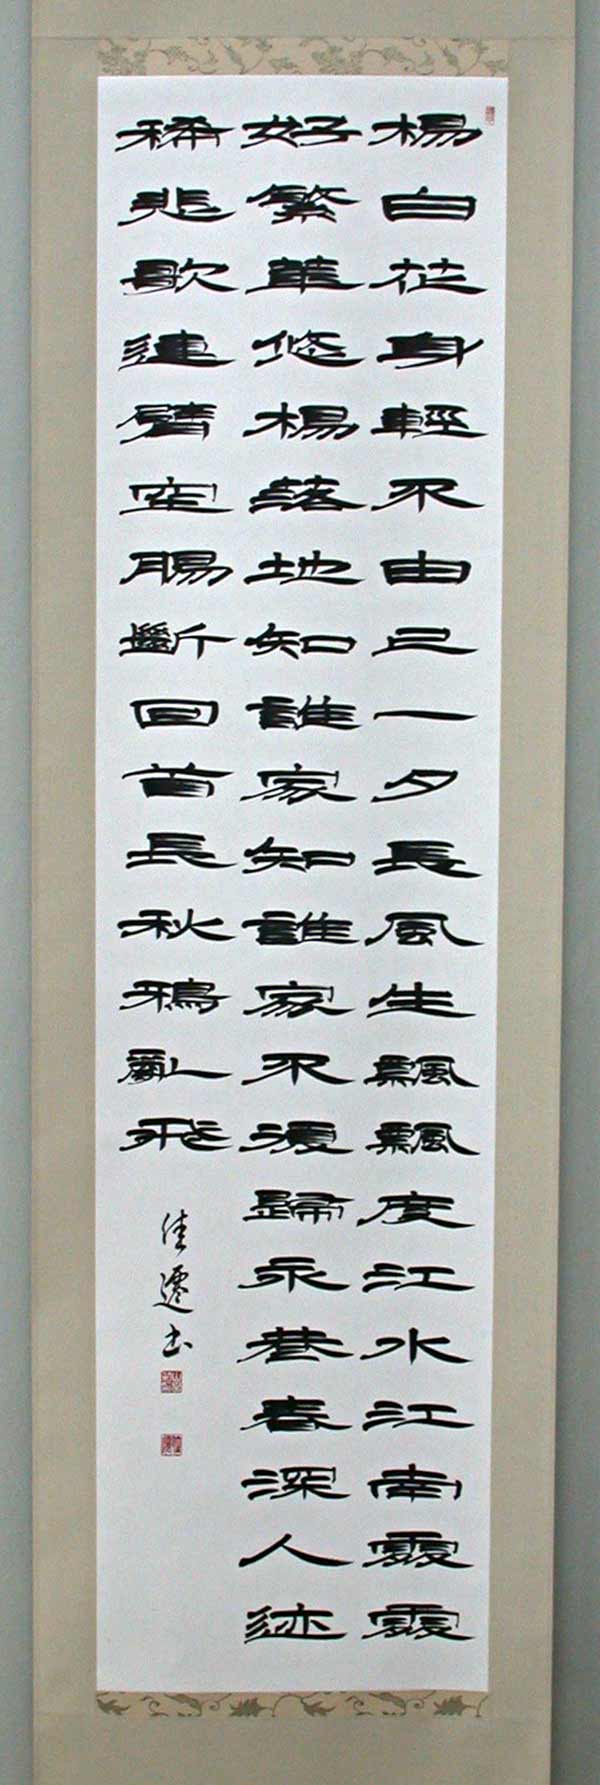 楊白花身輕不由己一夕長風生飄飄度江水江南處處
好繁華悠楊落地知誰家知誰家不復歸永巷春深人迹
稀悲歌連臂空腸斷回首長秋鴉亂飛
佳遷书